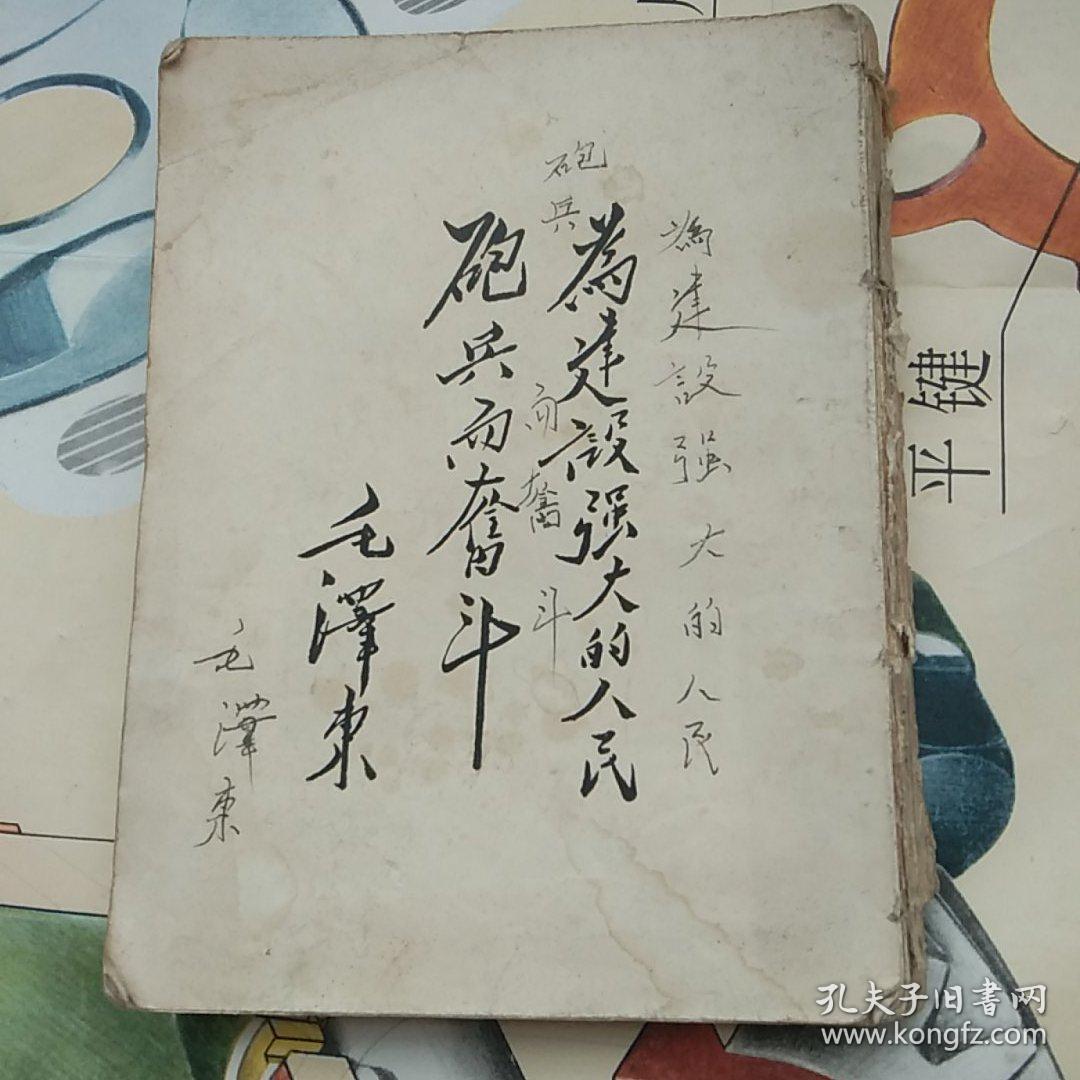 為建設强大的人民
為建設强大的人民
砲兵而奮斗
砲兵而奮斗
毛澤東
毛澤東
平键
孔夫子旧书网
www.kongfz.com